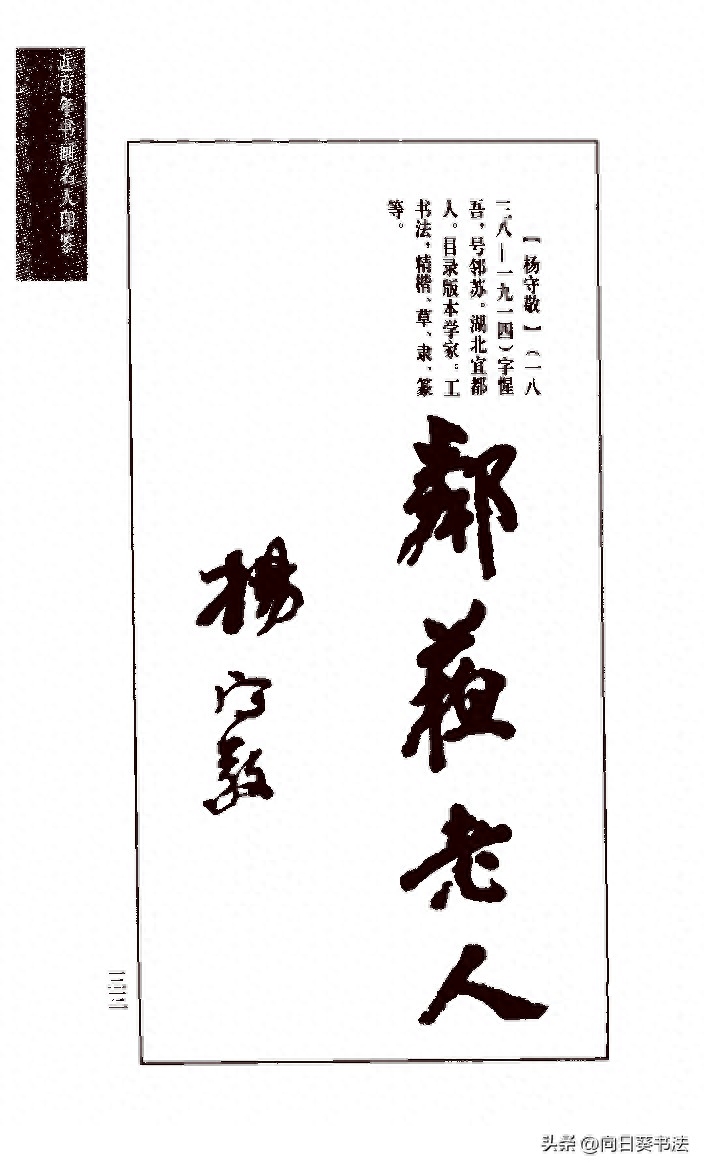 近百年书画名人印鉴
【杨守敬】（一八
三八—一九一四）字惺
吾，号邻苏。湖北宜都
人。目录版本学家。工
书法，精楷、草、隶、篆
等。
鄰蘇老人
楊守敬
头条 @向日葵书法